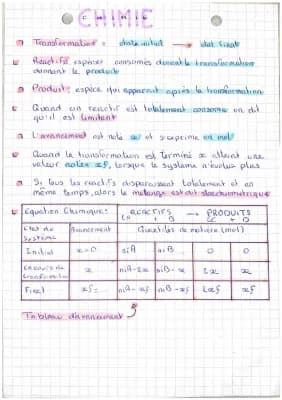 CHIMIE
Transformation : état initial → état final
Réactifs espèces consommés donnant la transformation
donnant le produit
Produit : espèce qui apparait après la transformation
Quand un réactif est totalement consommé on dit
qu'il est limitant
L'avancement est noté x et s'exprime en mol
Quand la transformation est terminé x atteint une
valeur notée xf, lorsque le système n'évolue plus
Si tous les réactifs disparaissent totalement et en
même temps, alors le mélange est dit stoechiométrique
Equation Chimique : RÉACTIFS → PRODUITS
A + B C + D
Etat du système Avancement Quantités de matière (mol)
Initial x=0 niA niB 0 0
En cours de transformation x niA-2x niB-x 2x x
Final xf=... niA-xf niB-xf 2xf xf
Tableau d'avancement